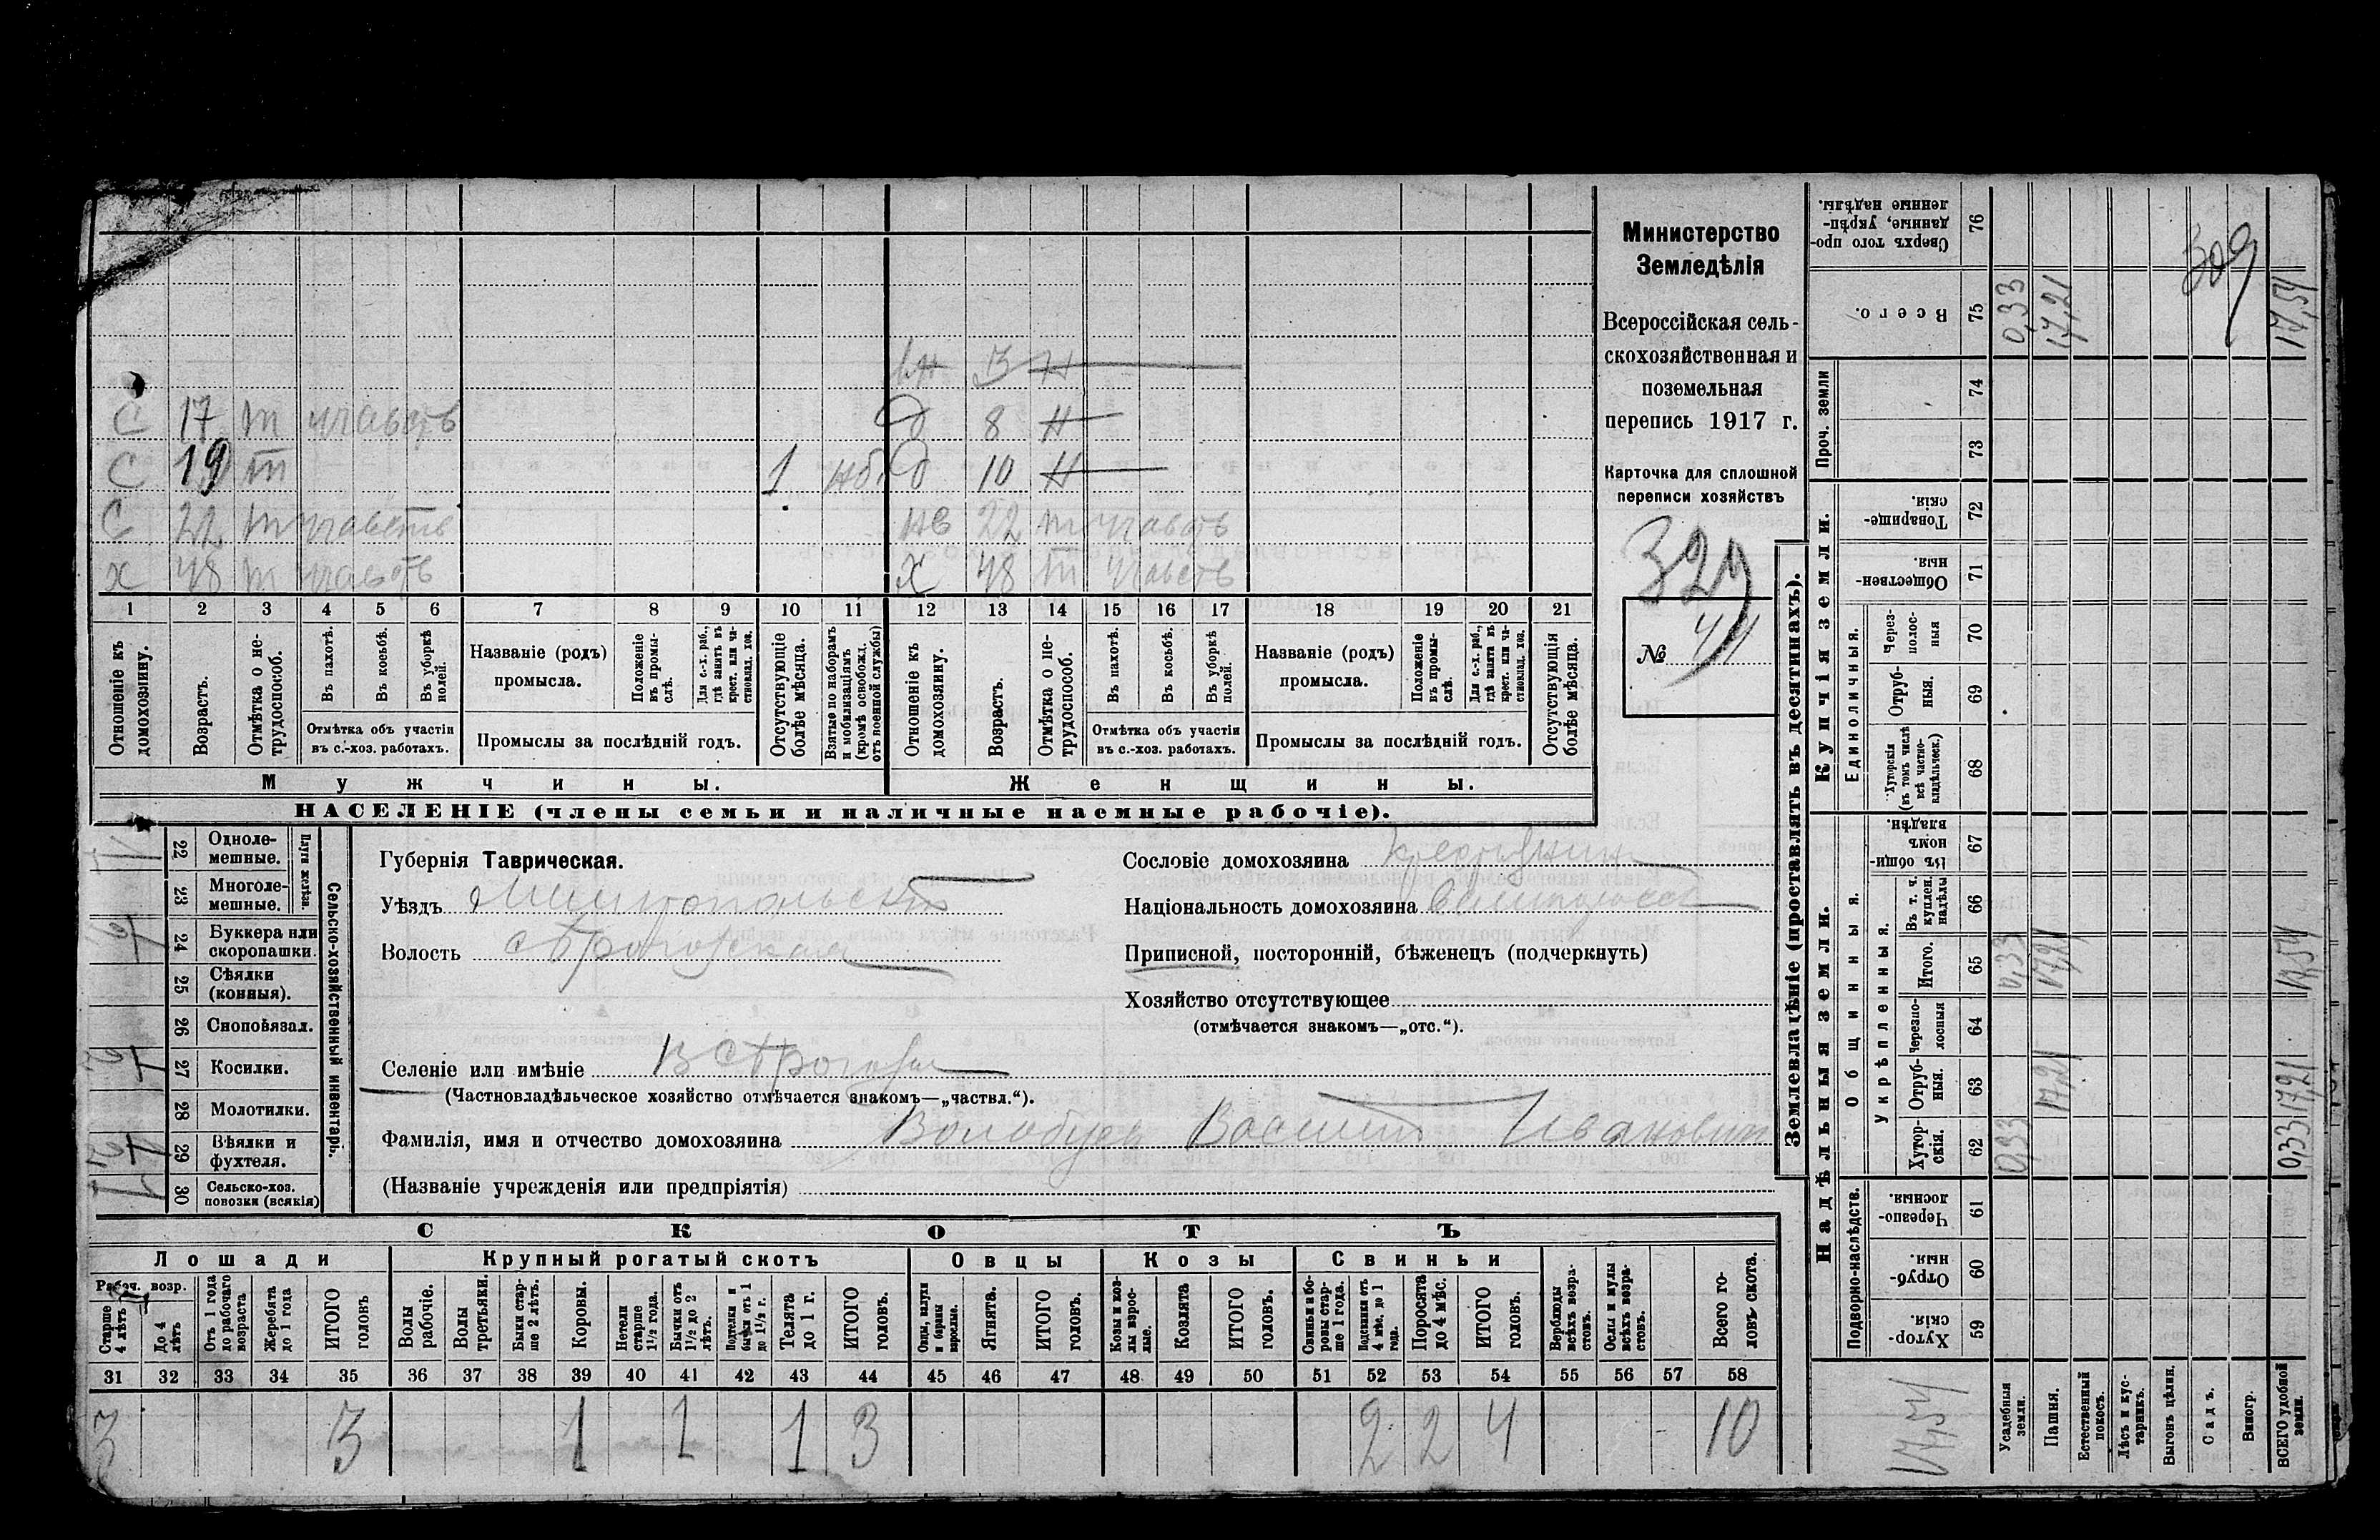 Министерство
Земледѣлія
Всероссійская сель-
скохозяйственная и
поземельная
перепись 1917 г.
Карточка для сплошной
переписи хозяйствъ
№ 44
Н
8 Н
С 17 т участв Д
С 19 т 1 Д 10 Н
С 22 т участв 22 т участв
Х 48 т участв Х 48 т участв
1 2 3 4 5 6 7 8 9 10 11 12 13 14 15 16 17 18 19 20 21
Отношеніе къ домохозяину.
Возрастъ.
Отмѣтка о не-трудоспособ.
Въ пахотѣ.
Въ косьбѣ.
Въ уборкѣ полей.
Отмѣтка объ участіи
въ с.-хоз. работахъ.
Названіе (родъ)
промысла.
Положеніе въ промы-слѣ.
Для с.-х. раб., гдѣ занятъ въ крест. или ча-стновлад. хоз.
Промыслы за послѣдній годъ.
Отсутствующіе болѣе мѣсяца.
Взятые по наборамъ и мобилизаціямъ (кромѣ освобожд. отъ военной службы)
Отношеніе къ домохозяину.
Возрастъ.
Отмѣтка о не-трудоспособ.
Въ пахотѣ.
Въ косьбѣ.
Въ уборкѣ полей.
Отмѣтка объ участіи
въ с.-хоз. работахъ.
Названіе (родъ)
промысла.
Положеніе въ промы-слѣ.
Для с.-х. раб., гдѣ занята въ крест. или ча-стновлад. хоз.
Промыслы за послѣдній годъ.
Отсутствующія болѣе мѣсяца.
Мужчины. Женщины.
НАСЕЛЕНІЕ (члены семьи и наличные наемные рабочіе).
Сельско-хозяйственный инвентарь.
Плуги желѣзн.
22 Одноле-мешные.
23 Многоле-мешные.
24 Буккера или скоропашки.
25 Сѣялки (конныя).
26 Сноповязал.
27 Косилки.
28 Молотилки.
29 Вѣялки и фухтеля.
30 Сельско-хоз. повозки (всякія)
Губернія Таврическая.
Уѣздъ Мелитопольскій
Волость
Селеніе или имѣніе
(Частновладѣльческое хозяйство отмѣчается знакомъ—„частвл.“).
Фамилія, имя и отчество домохозяина Волобуев Василий Иванович
(Названіе учрежденія или предпріятія)
Сословіе домохозяина крестьянин
Національность домохозяина великоросс
Приписной, посторонній, бѣженецъ (подчеркнуть)
Хозяйство отсутствующее
(отмѣчается знакомъ—„отс.“).
СКОТЪ
Лошади Крупный рогатый скотъ Овцы Козы Свиньи
Рабоч. возр.
Старше 4 лѣтъ
До 4 лѣтъ
Отъ 1 года до рабочаго возраста
Жеребята до 1 года
ИТОГО головъ
Волы рабочіе.
Волы третьяки.
Быки стар-ше 2 лѣтъ.
Коровы.
Нетели старше 1½ года.
Бычки отъ 1½ до 2 лѣтъ.
Подтелки и бычки отъ 1 до 1½ г.
Телята до 1 г.
ИТОГО головъ.
Овцы, валухи и бараны взрослые.
Ягнята.
ИТОГО головъ.
Козы и коз-лы взрос-лые.
Козлята
ИТОГО головъ.
Свиньи и бо-ровы стар-ше 1 года.
Подсвинки отъ 4 мѣс. до 1 года.
Поросята до 4 мѣс.
ИТОГО головъ.
Верблюды всѣхъ возра-стовъ.
Ослы и мулы всѣхъ возра-стовъ.
Всего го-ловъ скота.
31 32 33 34 35 36 37 38 39 40 41 42 43 44 45 46 47 48 49 50 51 52 53 54 55 56 57 58
3 3 1 1 1 3 2 2 4 10
Землевладѣніе (проставлять въ десятинахъ).
Надѣльныя земли.
Подворно-наслѣдств.
Хутор-скія. 59
Отруб-ныя. 60
Черезпо-лосныя. 61
Общинныя.
Укрѣпленныя.
Хутор-скія. 62
Отруб-ныя. 63
Черезпо-лосныя 64
Итого. 65
Въ т. ч. куплен. надѣлы 66
Въ общи-номъ владѣн. 67
Купчія земли.
Единоличныя.
Хуторскія (въ томъ числѣ всѣ частно-владѣльческ.) 68
Отруб-ныя. 69
Через-полос-ныя 70
Обществен-ныя. 71
Товарище-скія. 72
Проч. земли
73 74
Всего. 75
Сверхъ того про-данные, укрѣп-ленные надѣлы. 76
17,54
Усадебныя земли. 0,33 0,33 0,33
Пашня. 17,21 17,21 17,21
Естественный покосъ.
Лѣсъ и кус-тарникъ.
Выгонъ цѣлин.
Садъ.
Виногр.
ВСЕГО удобной земли. 0,33 17,21 17,54 17,54
309